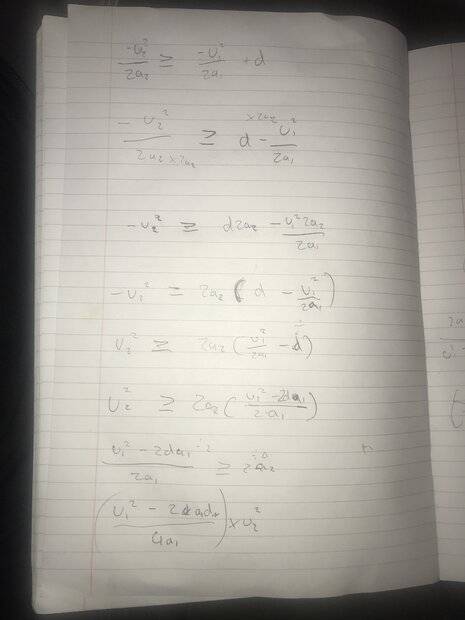 -u₂²/2a₂ ≥ -u₁²/2a₁ + d
-u₂²/2a₂ ×2a₂ ≥ d ×2a₂ - u₁²/2a₁
-u₂² ≥ d2a₂ - u₁²2a₂/2a₁
-u₂² ≥ 2a₂(d - u₁²/2a₁)
u₂² ≥ 2a₂(u₁²/2a₁ - d)
u₂² ≥ 2a₂(u₁² - 2da₁/2a₁)
u₁² - 2da₁/2a₁ ÷2 ≥ 2a₂
(u₁² - 2a₁d/4a₁) × u₂²